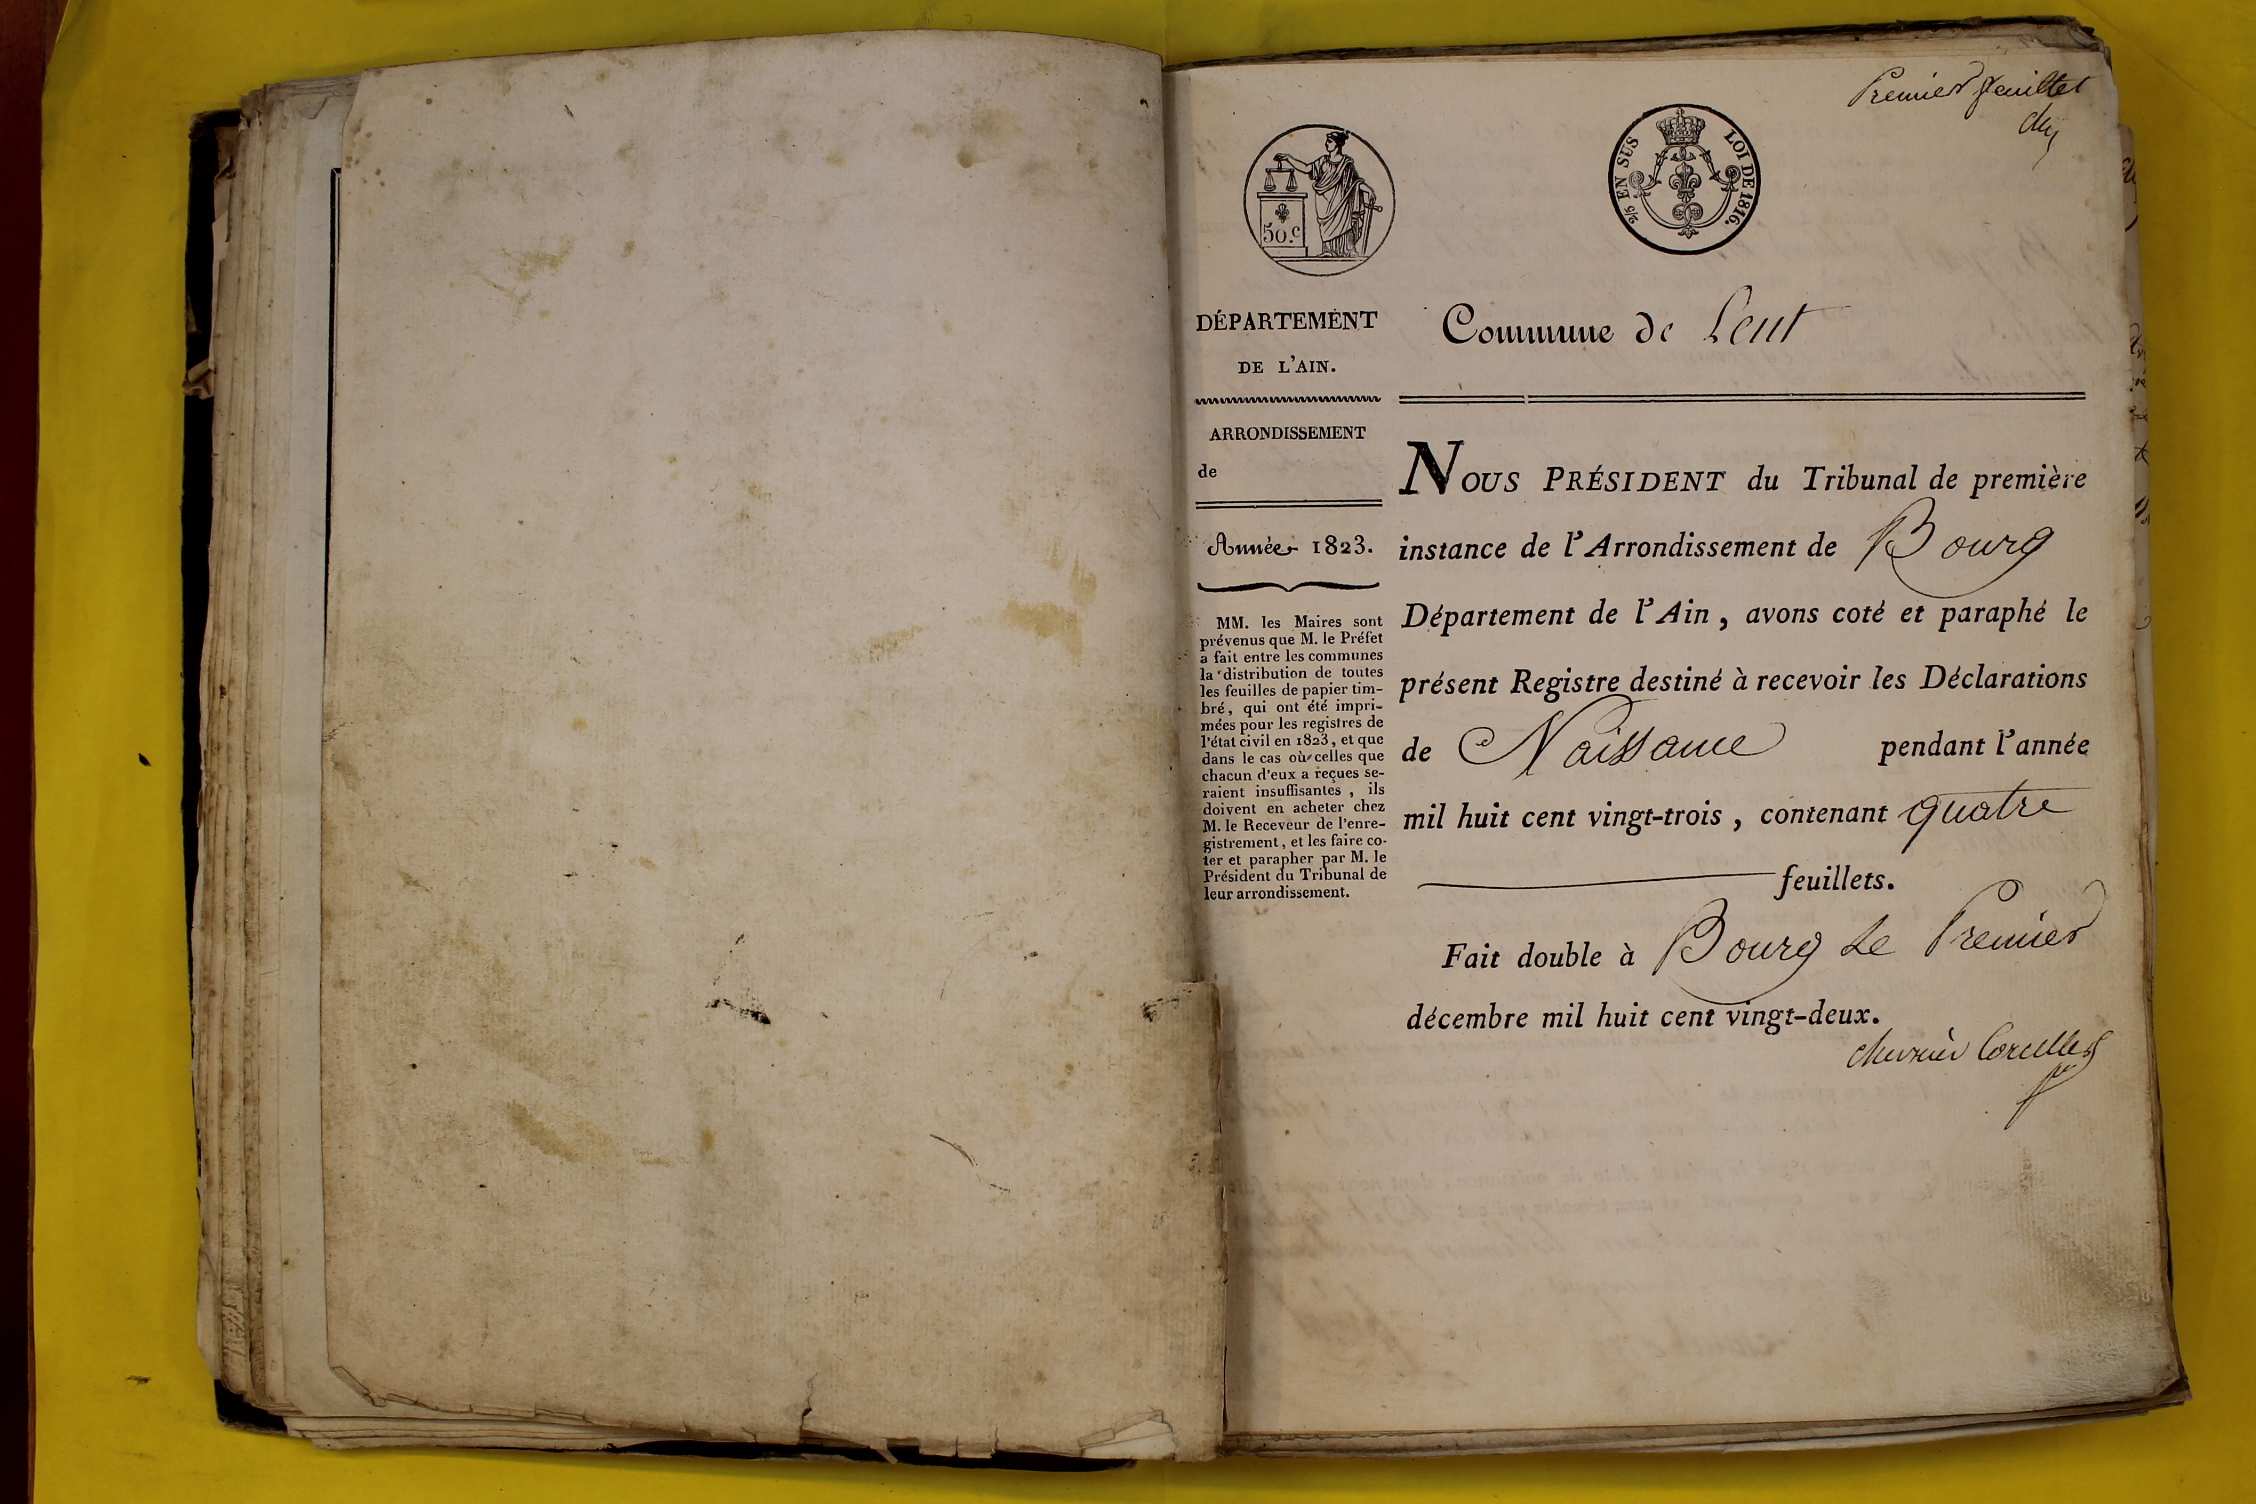 Premier feuillet
50.c
2/5 EN SUS LOI DE 1816.
DÉPARTEMENT
DE L'AIN.
ARRONDISSEMENT
de
Année 1823.
MM. les Maires sont
prévenus que M. le Préfet
a fait entre les communes
la distribution de toutes
les feuilles de papier tim-
bré, qui ont été impri-
mées pour les registres de
l'état civil en 1823, et que
dans le cas où celles que
chacun d'eux a reçues se-
raient insuffisantes, ils
doivent en acheter chez
M. le Receveur de l'enre-
gistrement, et les faire co-
ter et parapher par M. le
Président du Tribunal de
leur arrondissement.
Commune de Lent
NOUS PRÉSIDENT du Tribunal de première
instance de l'Arrondissement de Bourg
Département de l'Ain, avons coté et paraphé le
présent Registre destiné à recevoir les Déclarations
de Naissance pendant l'année
mil huit cent vingt-trois, contenant quatre
feuillets.
Fait double à Bourg Le Premier
décembre mil huit cent vingt-deux.